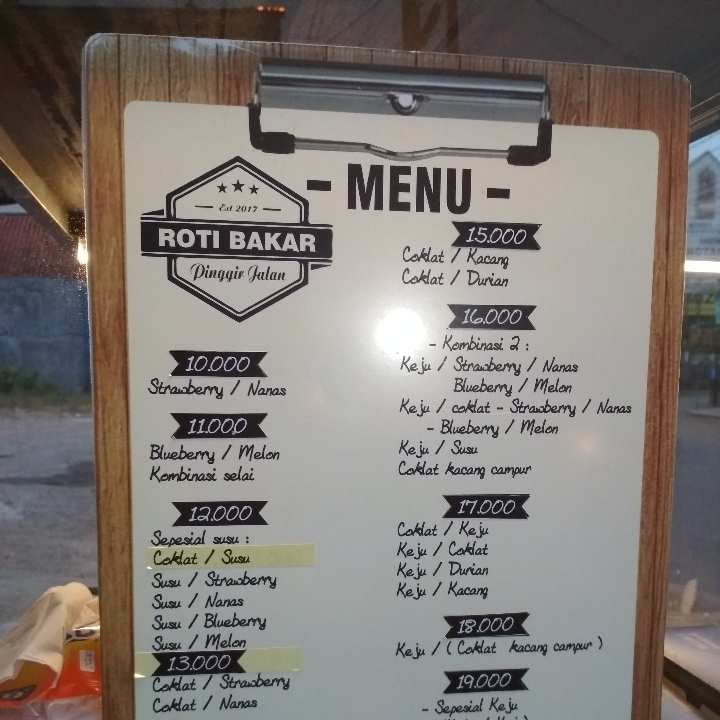 - MENU -
Est 2017
ROTI BAKAR
Pinggir Jalan
10.000
Strawberry / Nanas
11.000
Blueberry / Melon
Kombinasi selai
12.000
Sepesial susu :
Coklat / Susu
Susu / Strawberry
Susu / Nanas
Susu / Blueberry
Susu / Melon
13.000
Coklat / Strawberry
Coklat / Nanas
15.000
Coklat / Kacang
Coklat / Durian
16.000
- Kombinasi 2 :
Keju / Strawberry / Nanas
Blueberry / Melon
Keju / coklat - Strawberry / Nanas
- Blueberry / Melon
Keju / Susu
Coklat kacang campur
17.000
Coklat / Keju
Keju / Coklat
Keju / Durian
Keju / Kacang
18.000
Keju / ( Coklat kacang campur )
19.000
- Sepesial Keju